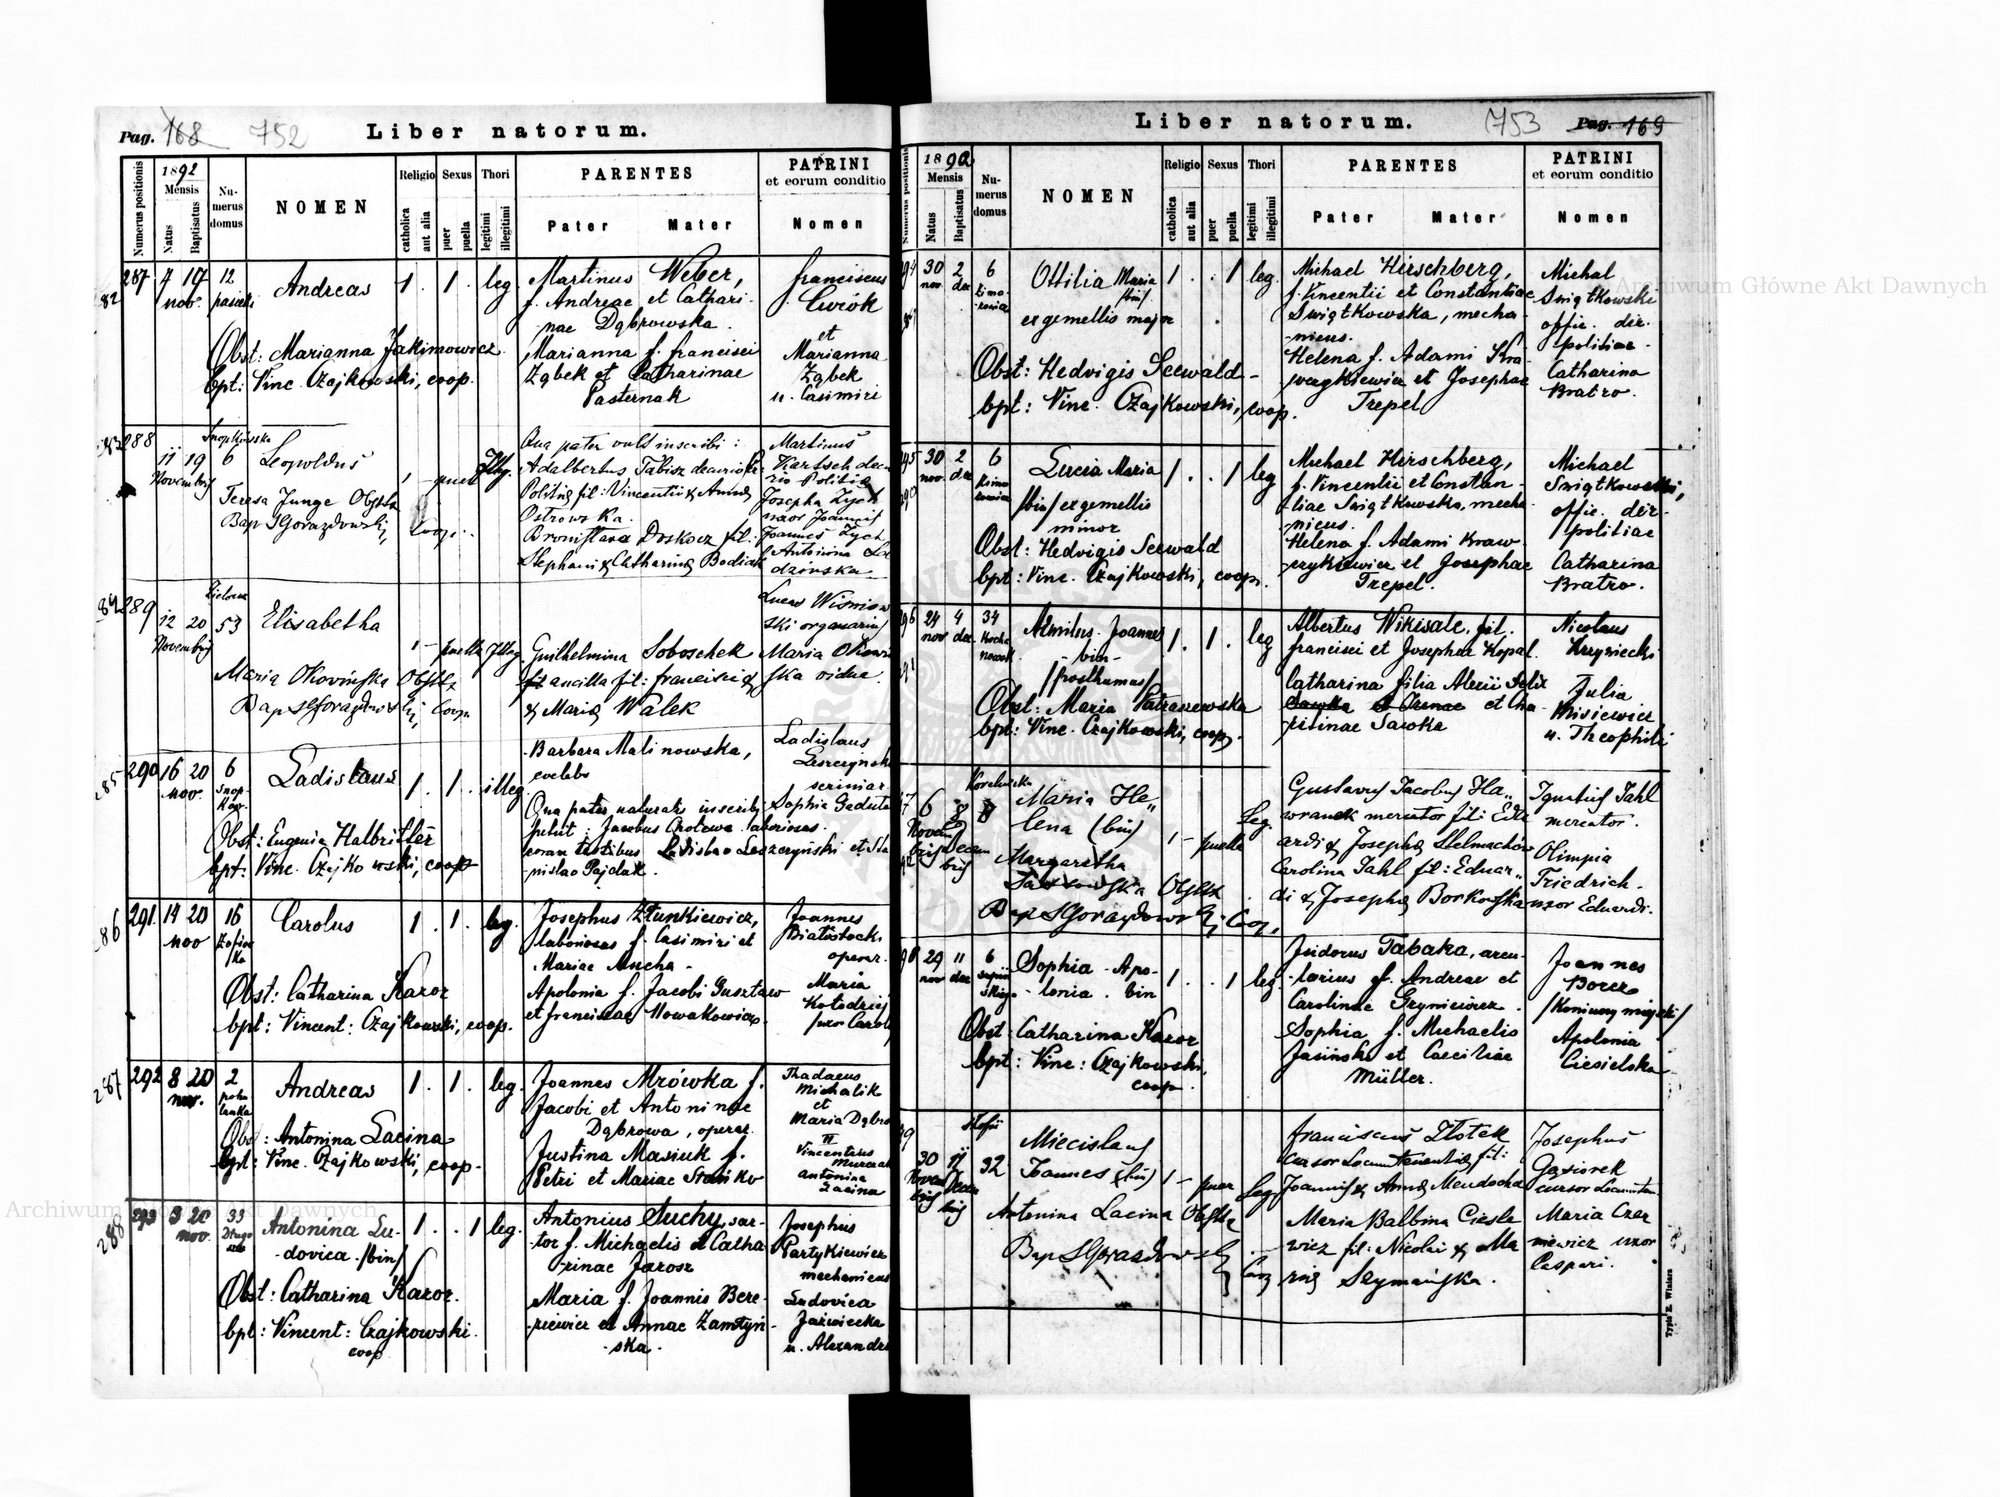 Pag. 168 752 Liber natorum.
Numerus positionis
1892
Mensis
Natus
Baptisatus
Numerus domus
NOMEN
Religio
catholica
aut alia
Sexus
puer
puella
Thori
legitimi
illegitimi
PARENTES
Pater Mater
PATRINI
et eorum conditio
Nomen
287 7 19 12 Andreas 1 . 1 . leg
nov.
Martinus Weber,
f. Andreae et Cathari-
nae Dąbrowska.
Marianna f. francisci
Ząbek et Catharinae
Pasternak
franciscus
Cwiok
et
Marianna
Ząbek
u. Casimiri
Obst: Marianna Jakimowicz
bpt: Vinc. Czajkowski, coop.
288 11 19 6 Leopoldus 1 - puer Illeg.
Novembris
Qua pater vult inscribi:
Adalbertus Tabisz
fil: Vincentii & Annae
Ostrowska.
Bronislava Doskocz fil:
Stephani & Catharinae Bodiak
Martinus
Josepha Zych
uxor Joannis
Joannes Zych
Antonina
Teresa Junge Obstx
Bap SGorazdowski,
Coop.
289 12 20 53 Elisabetha 1 - puella Illeg
Novembris
Guilhelmina Soboschek
ancilla fil: francisci &
& Mariae Walek
Lucas
Maria
vidua
Maria Okovińska Obstx
Bap SGorazdowski Coop.
290 16 20 6 Ladislaus 1 . 1 . illeg
nov.
Barbara Malinowska,
coelebs
Qua pater naturalis inscribi
petiit: Jacobus laboriosus.
coram testibus Ladislao Leszczyński et Sta-
nislao Pajdak.
Ladislaus
Leszczyński
Sophia Gaduta
Obst: Eugenia Halbritter
bpt: Vinc. Czajkowski, coop
291 14 20 16 Carolus 1 . 1 . leg.
nov
Josephus
laboriosus f. Casimiri et
Mariae Mucha -
Apolonia f. Jacobi Gusztaw
et franciscae Nowakowicz.
Joannes
Białostocki
operar.
Maria
Kołodziej
uxor Caroli
Obst: Catharina Kazor
bpt: Vincent: Czajkowski, coop.
292 8 20 2 Andreas 1 . 1 . leg.
nov.
Joannes Mrówka f.
Jacobi et Antoninae
Dąbrowa, operar.
Justina Masiuk f.
Petri et Mariae Stańko
Thadaeus
Michalik
et
Maria
II
Vincentius
Antonina
Łacina
Obst: Antonina Łacina
bpt: Vinc. Czajkowski, coop.
293 3 20 33 Antonina Lu- 1 . . 1 leg.
nov.
dovica /bin/
Antonius Suchy, sar-
tor f. Michaelis et Catha-
rinae Jarosz
Maria f. Joannis Bere-
ziewicz et Annae Zamłyń-
ska.
Josephus
Partykiewicz
mechanicus
Ludovica
Jaźwiecka
u. Alexandri
Obst: Catharina Kazor.
bpt: Vincent: Czajkowski.
coop
Liber natorum. 753 Pag. 169
Numerus positionis
1892
Mensis
Natus
Baptisatus
Numerus domus
NOMEN
Religio
catholica
aut alia
Sexus
puer
puella
Thori
legitimi
illegitimi
PARENTES
Pater Mater
PATRINI
et eorum conditio
Nomen
94 30 2 6 Ottilia Maria 1 . . 1 leg.
nov. dec
/bin/
ex gemellis major
Michael Hirschberg,
f. Vincentii et Constantiae
Świątkowska, mecha-
nicus.
Helena f. Adami Kra-
wczykiewicz et Josephae
Trepel
Michal
Świątkowski
offic. dir.
politiae
Catharina
Bratro.
Obst: Hedvigis Seewald -
bpt: Vinc. Czajkowski, coop.
95 30 2 6 Lucia Maria 1 . . 1 leg
nov. dec
/bin/ ex gemellis
minor
Michael Hirschberg,
f. Vincentii et Constan-
tiae Świątkowska, mecha-
nicus.
Helena f. Adami Kraw-
czykiewicz et Josephae
Trepel.
Michael
Świątkowski,
offic. dir.
politiae
Catharina
Bratro.
Obst: Hedvigis Seewald
bpt: Vinc. Czajkowski, coop.
96 24 4 34 Aemilius Joannes 1 . 1 . leg
nov dec.
- bin -
/posthumus/
Albertus Wikisale. fil.
francisci et Josephae Kopal.
Catharina filia Alexii
et Cha-
ritinae Sawka
Nicolaus
Krzyniecki
Julia
Misiewicz
u. Theophili
Obst: Maria Patraszewska
bpt: Vinc. Czajkowski, coop.
97 6 8 Maria He„ 1 - puella Leg.
Novembris Decembris
lena (bin)
Gustavus Jacobus Ha„
wranek mercator fil: Edu„
ardi & Josephae Stelmachów
Carolina Jahl fil: Eduar„
di & Josephae Borkowska
Ignatius Jahl
mercator.
Olimpia
Friedrich.
uxor Eduardi.
Margaretha
Tarnowska Obstx
Bap SGorazdowski Coop.
98 29 11 6 Sophia - Apo- 1 . . 1 leg
nov dec
lonia . bin
Isidorus Tabaka, aren-
tarius f. Andreae et
Carolinae Gryniewicz.
Sophia f. Michaelis
Jasiński et Caeciliae
Müller.
Joannes
Borcz
/Kominiarz miejski/
Apolonia
Ciesielska
Obst: Catharina Kazor
bpt: Vinc: Czajkowski,
coop.
99 30 11 32 Miecislaus 1 - puer Leg
Novembris Decembris
Joannes (bin)
franciscus Złotek
cursor Locumtenentiae fil:
Joannis & Annae Mendocha
Maria Balbina Cieśle
wicz fil: Nicolai & Ma
riae Szymańska.
Josephus
Gąsiorek
cursor Locumten.
Maria Czer
niewicz uxor
Caspari.
Antonina Łacina Obstx
Bap SGorazdowski
Coop
Typis E. Winiarz
Archiwum Główne Akt Dawnych
Archiwum Główne Akt Dawnych